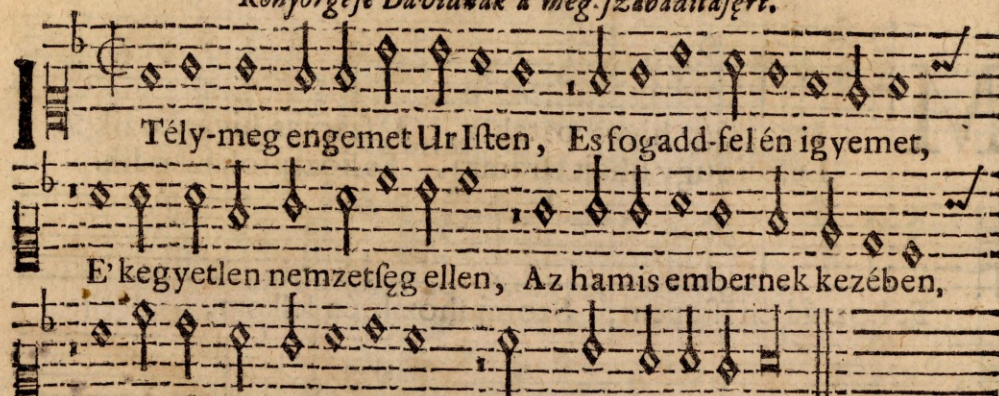 Könyörgése Dávidnak a meg-ſzabadításęrt.
I Tély-meg engemet Ur Iſten, Es fogadd-fel én igyemet,
E' kegyetlen nemzetſęg ellen, Az hamis embernek kezében,